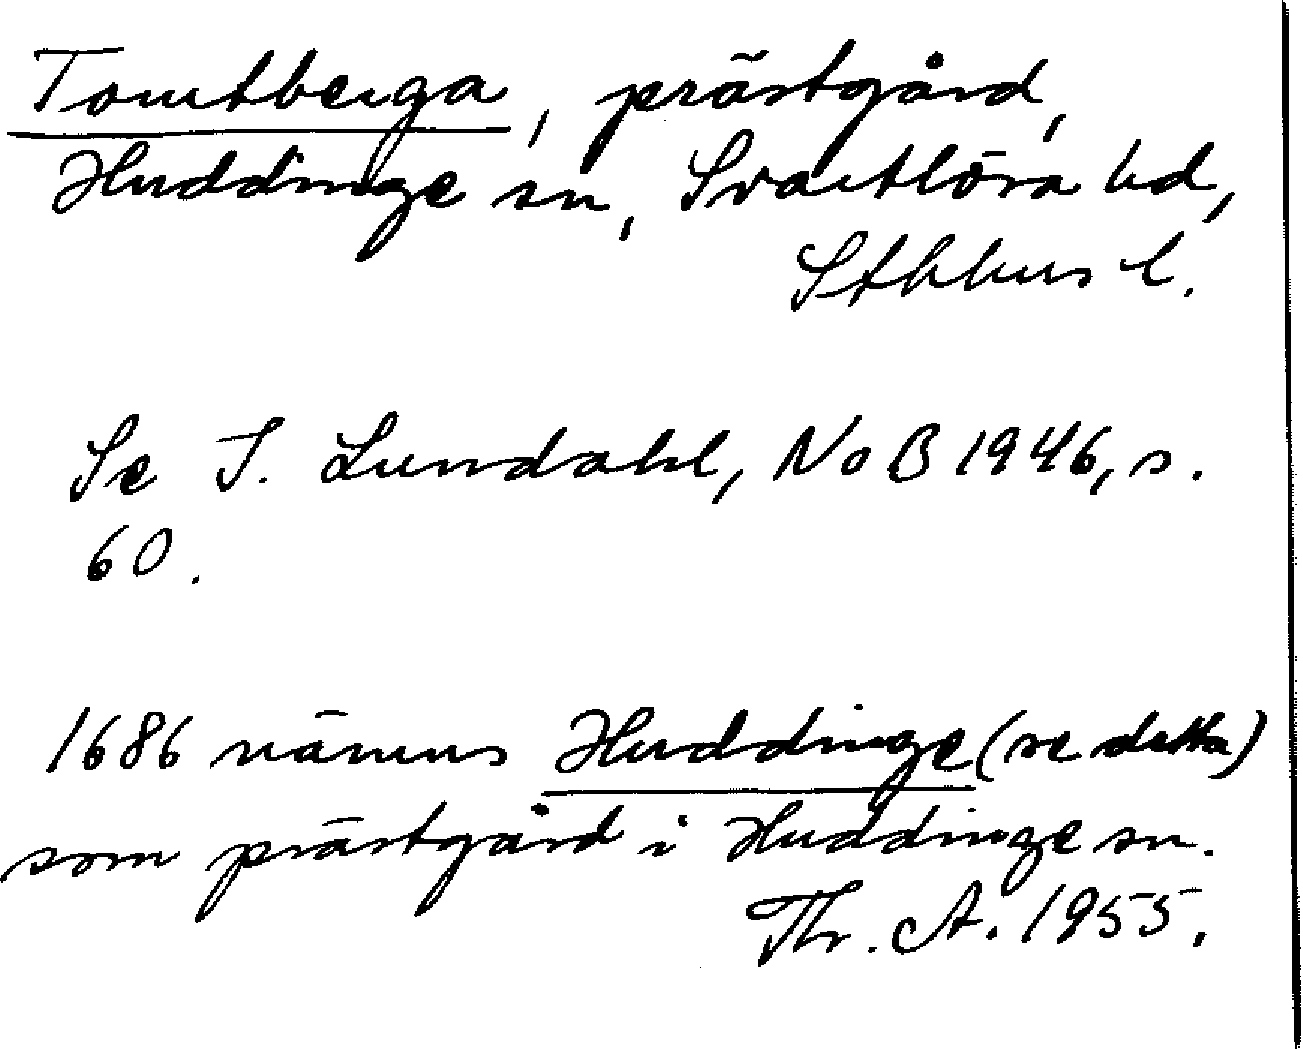 Tomtberga, prästgård,
Huddinge sn, Svartlösa hd,
Sthlms l.
Se I. Lundahl, NoB 1946, s.
60.
1686 nämns Huddinge (se detta)
som prästgård i Huddinge sn.
Thr. A. 1955.